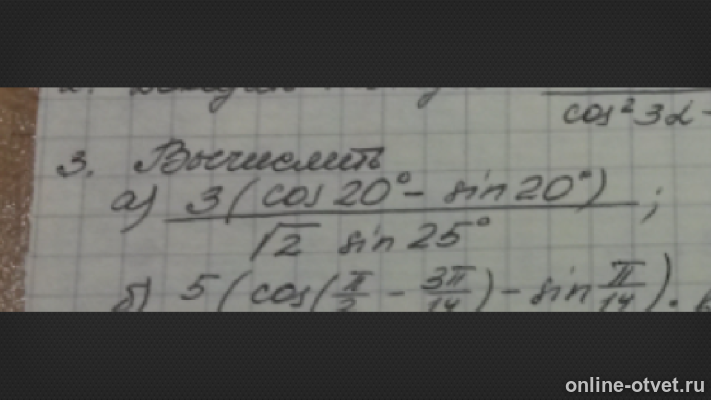 cos² 3α -
3. Вычислить
а) 3(cos 20° - sin 20°) / √2 sin 25° ;
б) 5(cos(π/2 - 3π/14) - sin π/14).
online-otvet.ru